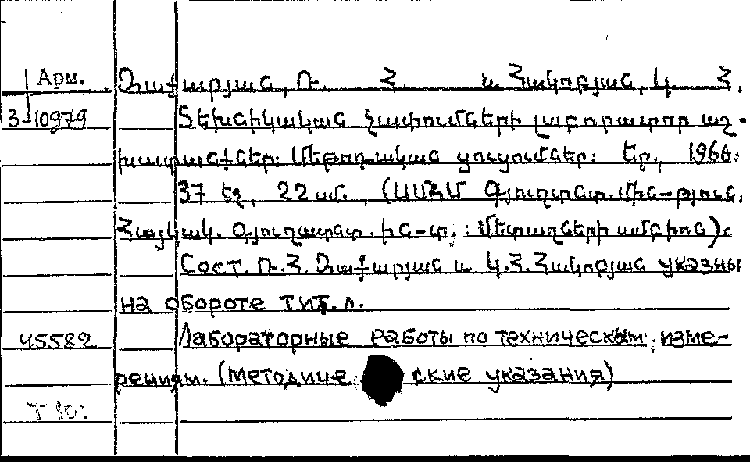 Арм. Զաքարյան, Ռ. Հ. և Հակոբյան, Կ. Հ.
3-10979 Տեխնիկական չափումների լաբորատոր աշ-
խատանքներ: Մեթոդական ցուցումներ: Եր., 1966.
37 էջ, 22 սմ. (ՍՍՀՄ Գյուղտնտ. մին-թյուն.
Հայկակ. Գյուղատնտ. ին-տ.: Մետաղների ամբիոն):
Сост. Ռ. Հ. Զաքարյան և Կ. Հ. Հակոբյան указаны
на обороте тит. л.
45582 Лабораторные работы по техническим изме-
рениям. (Методические указания)